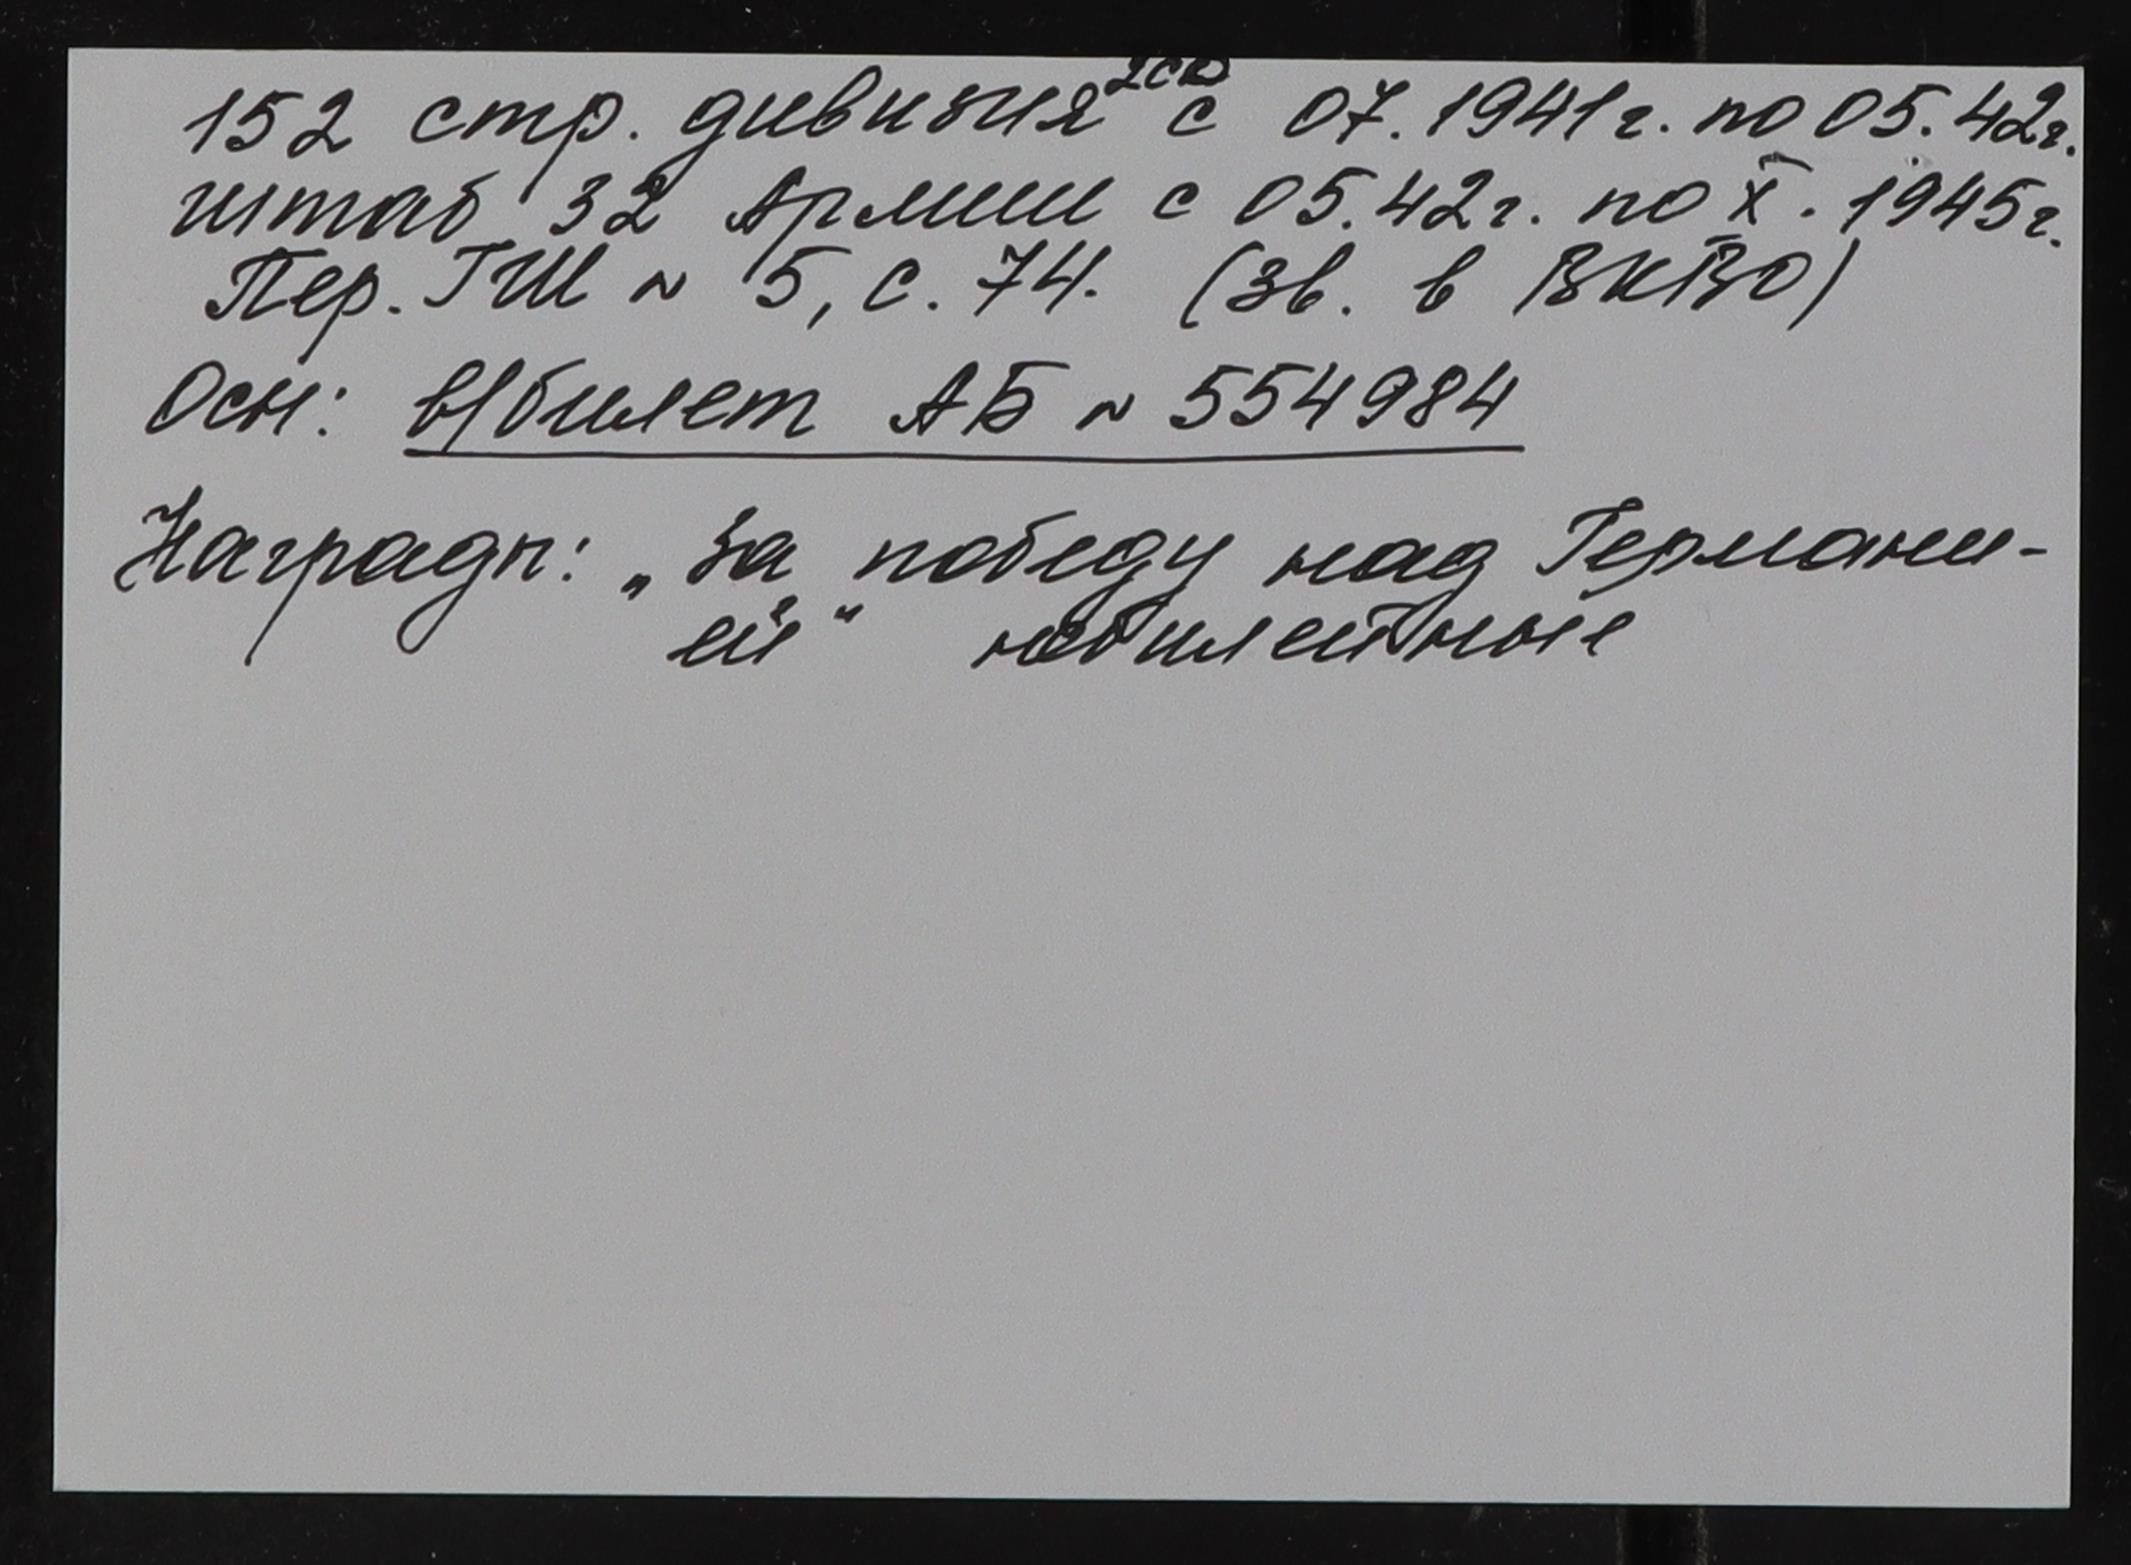 152 стр. дивизия с 07.1941 г. по 05.42 г.
штаб 32 Армии с 05.42 г. по X. 1945 г.
Пер. ГШ N 5, с. 74. (зв. в ВКВО)
Осн: в/билет АБ N 554984
Награды: „За победу над Германи-
ей" юбилейные